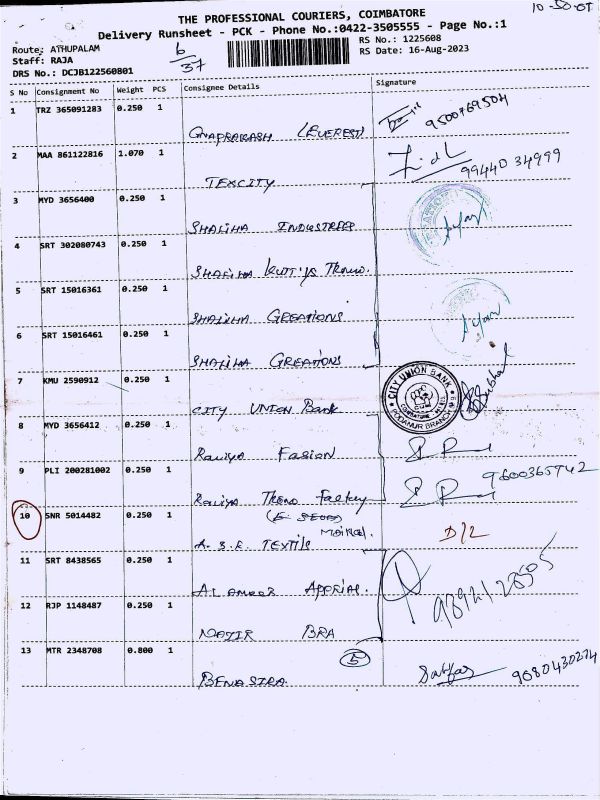 THE PROFESSIONAL COURIERS, COIMBATORE
Delivery Runsheet - PCK - Phone No.:0422-3505555 - Page No.:1
Route: ATHUPALAM
6/37
RS No.: 1225608
Staff: RAJA
RS Date: 16-Aug-2023
DRS No.: DCJB122560801
S No Consignment No Weight PCS Consignee Details Signature
1 TRZ 365091283 0.250 1
GNAPRAKASH (EVEREST) 9500769504
2 MAA 861122816 1.070 1
TEXCITY 99440 34999
3 MYD 3656400 0.250 1
SHALIHA INDUSTREES
4 SRT 302080743 0.250 1
SHALIHA
5 SRT 15016361 0.250 1
SHALIHA CREATIONS
6 SRT 15016461 0.250 1
SHALIHA CREATIONS
7 KMU 2590912 0.250 1
CITY UNION Bank
CITY UNION BANK
PODANUR BRANCH
8 MYD 3656412 0.250 1
Raliya Fasion
9 PLI 200281002 0.250 1
Raliya 9600365742
10 SNR 5014482 0.250 1
A. S. E. TEXTILS D/L
11 SRT 8438565 0.250 1
AL AMEER
12 RJP 1148487 0.250 1
NAZIR BRA
13 MTR 2348708 0.800 1
5
BENASIRA 9080430274